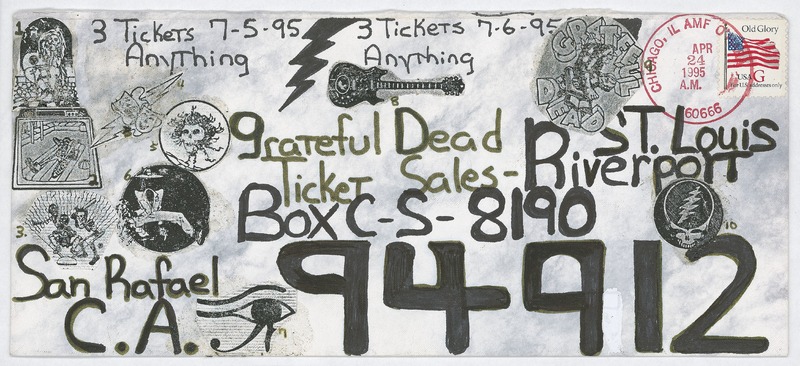 3 Tickets 7-5-95
Anything
3 Tickets 7-6-95
Anything
GRATEFUL
DEAD
CHICAGO, IL AMF
APR
24
1995
A.M.
60666
Old Glory
USA G
For U.S. addresses only
Grateful Dead
Ticket Sales-
ST. Louis
Riverport
Box C-S-8190
San Rafael
C.A.
94912
1
2
3.
4
5
6
7
8
9
10